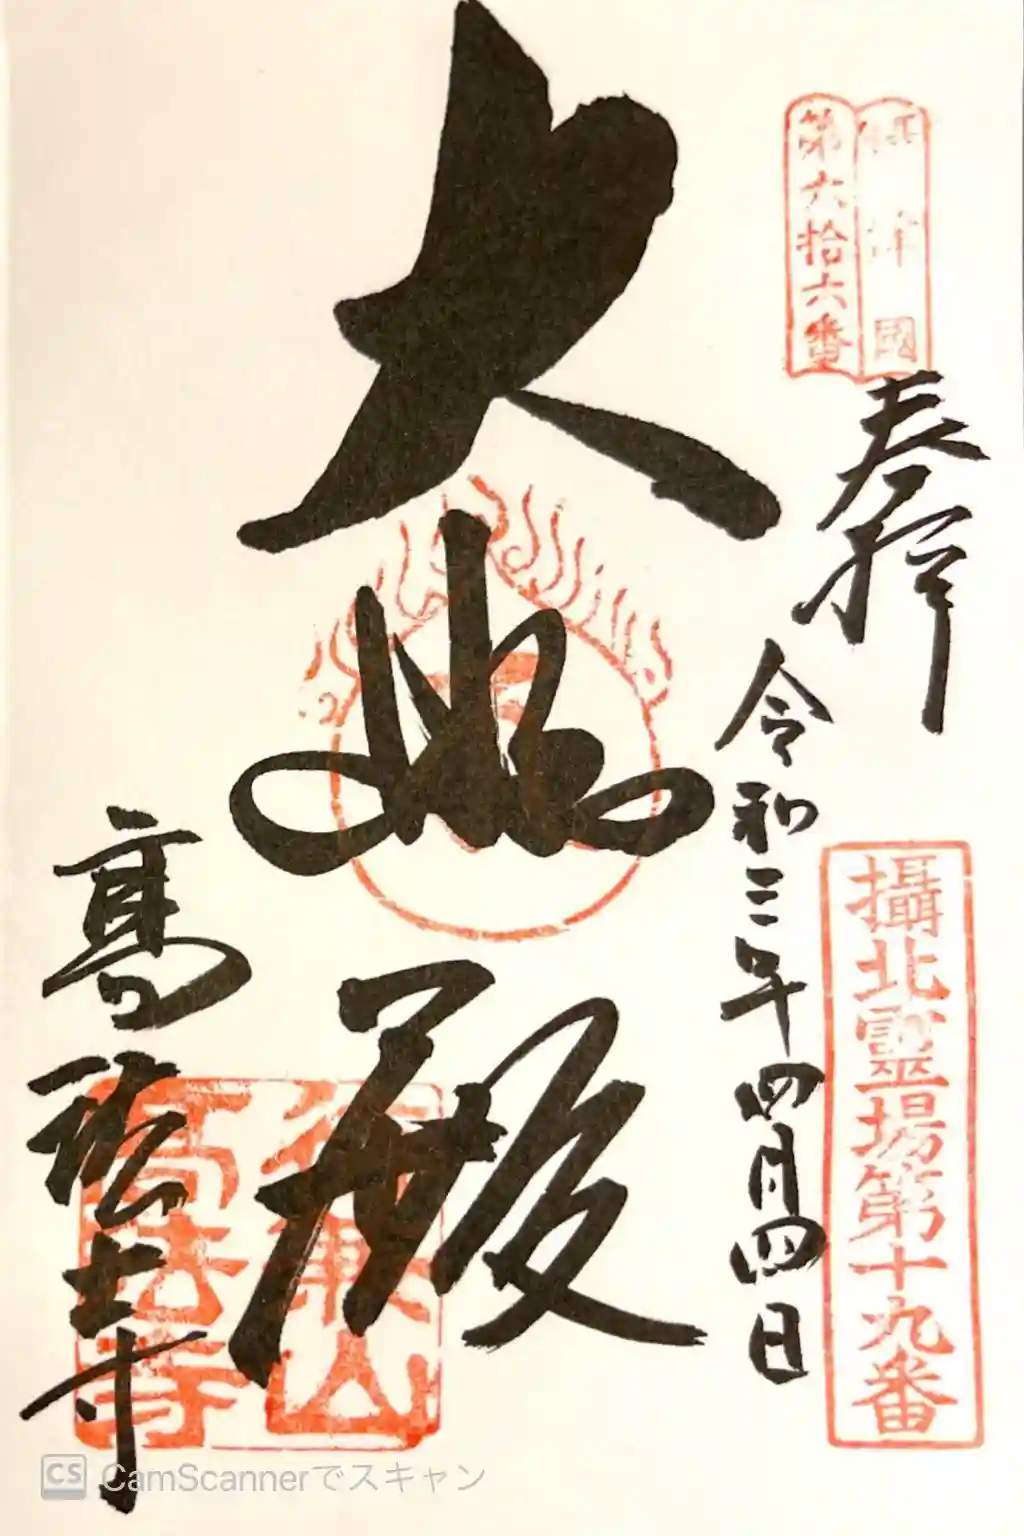 攝津國
第六拾六番
奉拝
令和三年四月四日
攝北霊場第十九番
大悲殿
高法寺
高法寺
CS CamScannerでスキャン